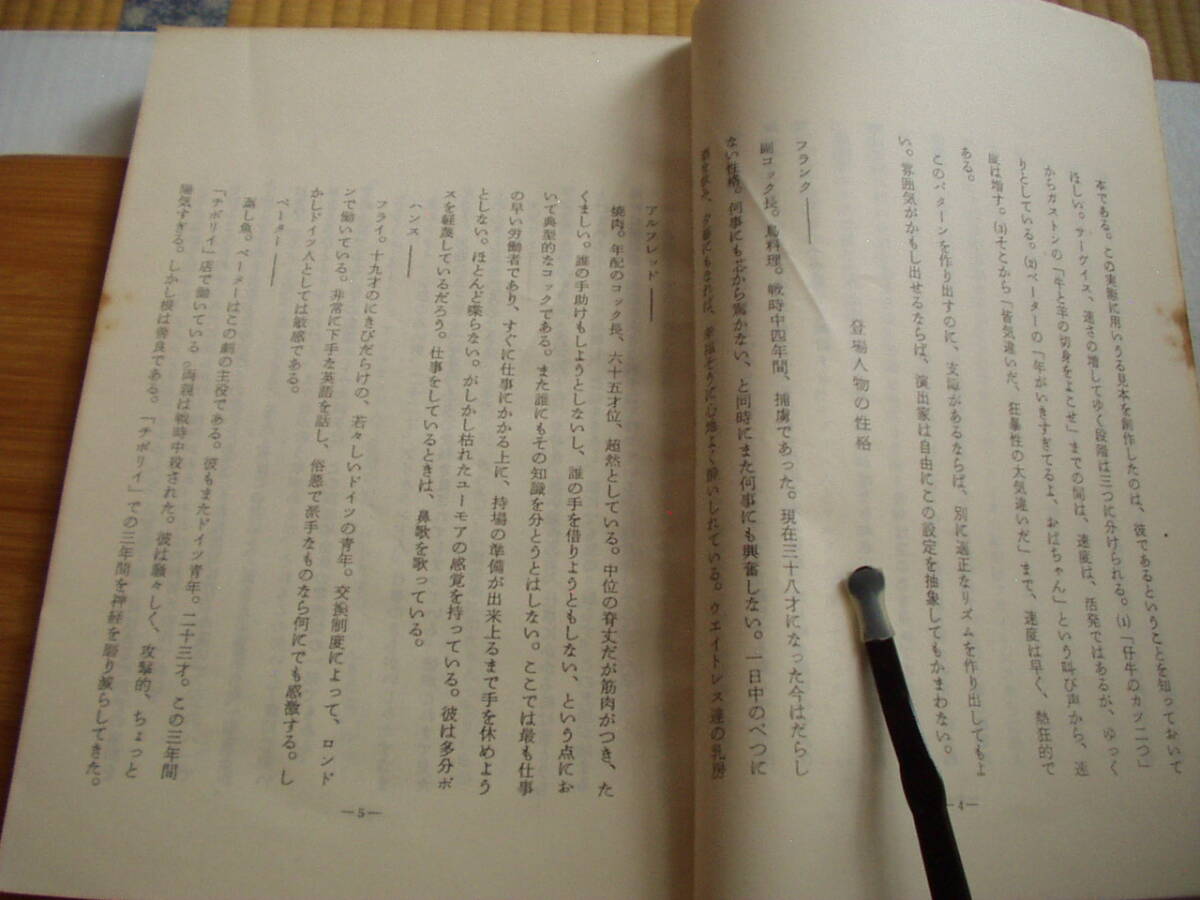 本である。この実際に用いうる見本を創作したのは、彼であるということを知っておいて
ほしい。サーヴィス、速さの増してゆく段階は三つに分けられる。(1)「仔牛のカツ二つ」
からガストンの「牛と羊の切身をよこせ」までの間は、速度は、活発ではあるが、ゆっく
りとしている。(2)ペーターの「年がいきすぎてるよ、おばちゃん」という叫び声から、速
度は増す。(3)そこから「皆気違いだ、狂暴性の大気違いだ」まで、速度は早く、熱狂的で
ある。
このパターンを作り出すのに、支障があるならば、別に適正なリズムを作り出してもよ
い。雰囲気がかもし出せるならば、演出家は自由にこの設定を抽象してもかまわない。
登場人物の性格
フランク――
副コック長。鳥料理。戦時中四年間、捕虜であった。現在三十八才になった今はだらし
ない性格。何事にも芯から驚かない、と同時にまた何事にも興奮しない。一日中のべつに
酒を飲み、夕暮にもなれば、幸福そうに心地よく酔いしれている。ウエイトレス達の乳房
―4―
アルフレッド――
焼肉。年配のコック長、六十五才位、超然としている。中位の脊丈だが筋肉がつき、た
くましい。誰の手助けもしようとしないし、誰の手を借りようともしない、という点にお
いて典型的なコックである。また誰にもその知識を分とうとはしない。ここでは最も仕事
の早い労働者であり、すぐに仕事にかかる上に、持場の準備が出来上るまで手を休めよう
としない。ほとんど喋らない。がしかし枯れたユーモアの感覚を持っている。彼は多分ボ
スを軽蔑しているだろう。仕事をしているときは、鼻歌を歌っている。
ハンス――
フライ。十九才のにきびだらけの、若々しいドイツの青年。交換制度によって、ロンド
ンで働いている。非常に下手な英語を話し、俗悪で派手なものなら何にでも感激する。し
かしドイツ人としては敏感である。
ペーター――
蒸し魚。ペーターはこの劇の主役である。彼もまたドイツ青年。二十三才。この三年間
「チボリイ」店で働いている。両親は戦時中殺された。彼は騒々しく、攻撃的、ちょっと
陽気すぎる。しかし根は善良である。「チボリイ」での三年間を神経を磨り減らしてきた。
―5―